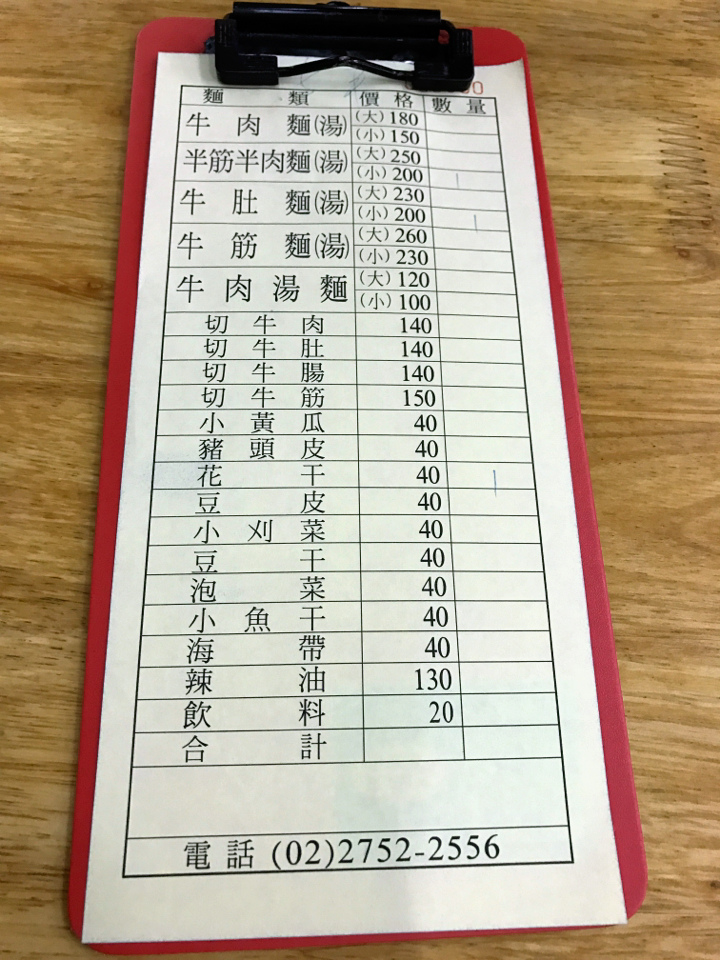 麵類 價格 數量
牛肉麵(湯) (大)180
(小)150
半筋半肉麵(湯) (大)250
(小)200
牛肚麵(湯) (大)230
(小)200
牛筋麵(湯) (大)260
(小)230
牛肉湯麵 (大)120
(小)100
切牛肉 140
切牛肚 140
切牛腸 140
切牛筋 150
小黃瓜 40
豬頭皮 40
花干 40
豆皮 40
小刈菜 40
豆干 40
泡菜 40
小魚干 40
海帶 40
辣油 130
飲料 20
合計
電話 (02)2752-2556